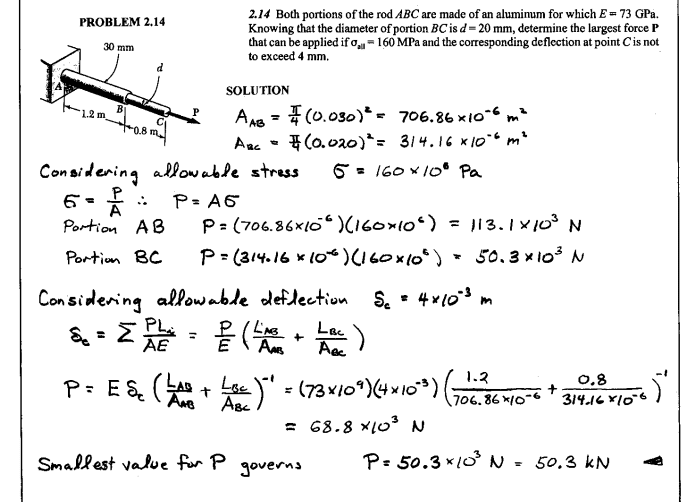 PROBLEM 2.14
2.14 Both portions of the rod ABC are made of an aluminum for which E = 73 GPa.
Knowing that the diameter of portion BC is d = 20 mm, determine the largest force P
that can be applied if σall = 160 MPa and the corresponding deflection at point C is not
to exceed 4 mm.
30 mm
d
A
B
C
P
1.2 m
0.8 m
SOLUTION
A_AB = π/4 (0.030)² = 706.86 × 10⁻⁶ m²
A_BC = π/4 (0.020)² = 314.16 × 10⁻⁶ m²
Considering allowable stress σ = 160 × 10⁶ Pa
σ = P/A ∴ P = Aσ
Portion AB P = (706.86×10⁻⁶)(160×10⁶) = 113.1 × 10³ N
Portion BC P = (314.16 × 10⁻⁶)(160×10⁶) = 50.3 × 10³ N
Considering allowable deflection δ_C = 4×10⁻³ m
δ_C = Σ PL_i/AE = P/E (L_AB/A_AB + L_BC/A_BC)
P = E δ_C (L_AB/A_AB + L_BC/A_BC)⁻¹ = (73×10⁹)(4×10⁻³)(1.2/706.86×10⁻⁶ + 0.8/314.16×10⁻⁶)⁻¹
= 68.8 × 10³ N
Smallest value for P governs P = 50.3 × 10³ N = 50.3 kN ◄